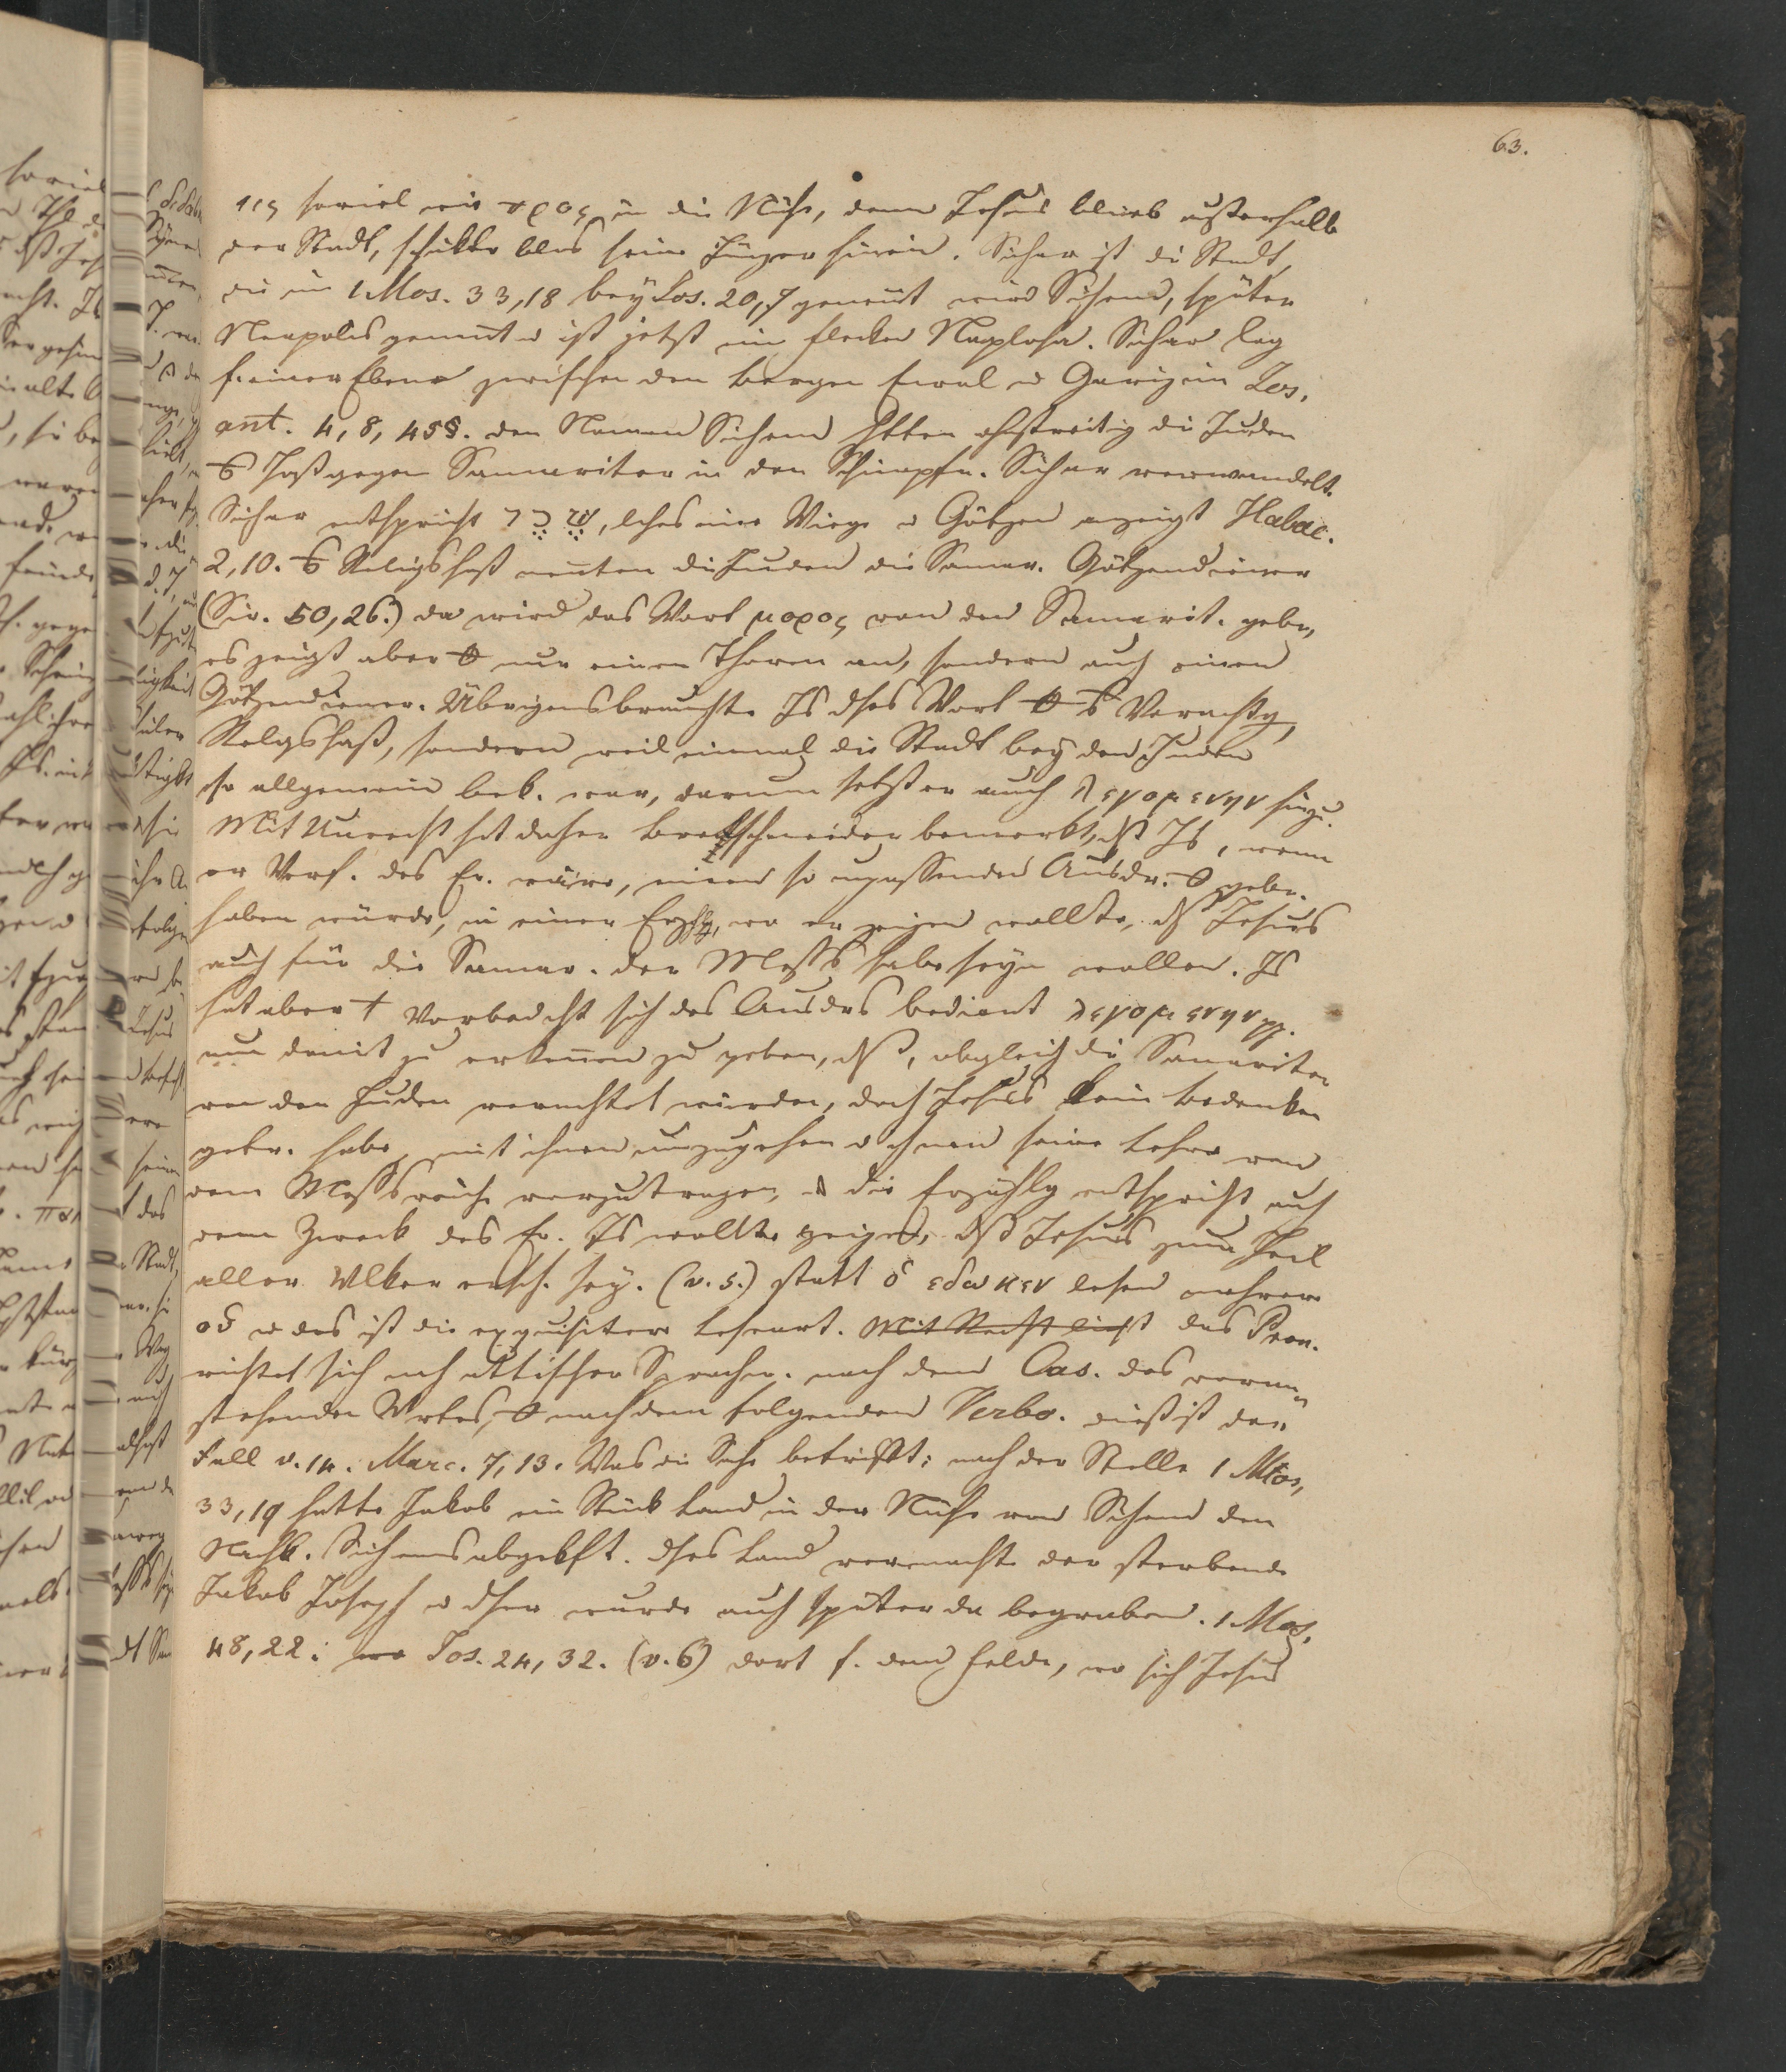 63.
εις soviel wie προς in die Nähe, denn Jesus blieb außerhalb
der Stadt, schikte blos seine Jünger hinein. Sichar ist die Stadt,
die in 1 Mos. 33,18 bey Jos. 20,7 genent wird Sichem, später
Neapolis genent u ist jetzt ein Flecken Naplosa. Sichar lag
f. einer Ebene zwischen den Bergen Ewal u Garizim Jos.
ant. 4, 8, 45§. den Namen Sichem hatten die Juden
Haß gegen Samariter in den Schimpfn. Sichar verwandelt.
Sichar entspricht שקר, lches eine Lüge u Götzen anzeigt Habac.
2,10. Religshaß nenten die Juden die Samar. Götzendiener
(Sir. 50,26.) da wird das Wort μορος von den Samarit. gebr.,
es zeigt aber nur einen Thoren an, sondern auch einen
Götzendiener. Übrigens brauchte Js dses Wort Verachtg,
Relgshaß, sondern weil einmal die Stadt bey den Juden
so allgemein bek. war, darum setzt er auch λεγομενην hinzu.
Mit Unrecht hat daher Bretschneider bemerkt, dß Js, wenn
er Verf. des Ev. wäre, einen so unpassenden Ausdr. gebr.
haben würde, in einer Erzhlg, wo er zeigen wollte, dß Jesus
auch für die Samar. der Messs habe seyn wollen. Js
hat aber Vorbedacht sich des Ausdrs bedient λεγομενην
um damit zu erkenen zu geben, dß, obgleich die Samariter
von den Juden verachtet wurden, doch Jesus kein Bedenken
getr. habe, mit ihnen umzugehen u ihnen seine Lehre von
dem Messsreiche vorzutragen, u die Erzählg entspricht auch
dem Zweck des Ev. Js wollte zeigen, dß Jesus zum Heil
aller Vlker ersch. sey. (v. 5.) statt ὁ εδωκεν lesen mehrere
οὑ u das ist die exquisitere Leseart. Mit Recht liest das Pron.
richtet sich nch attischer Sprachw. nach dem Cas. des voran
stehenden Wrtes, nach dem folgenden Verbo. dieß ist der
Fall v. 14. Marc. 7,13. Was die Sache betrifft: nach der Stelle 1 Mos,
33,19 hatte Jakob ein Stück Land in der Nähe von Sichem den
Nachk. Sichems abgekft. dses Land vermachte der sterbende
Jakob Joseph u dser wurde auch später da begraben. 1 Mos.
48,22: Jos. 24,32. (v. 6) dort f. dem Felde, wo sich Jesus